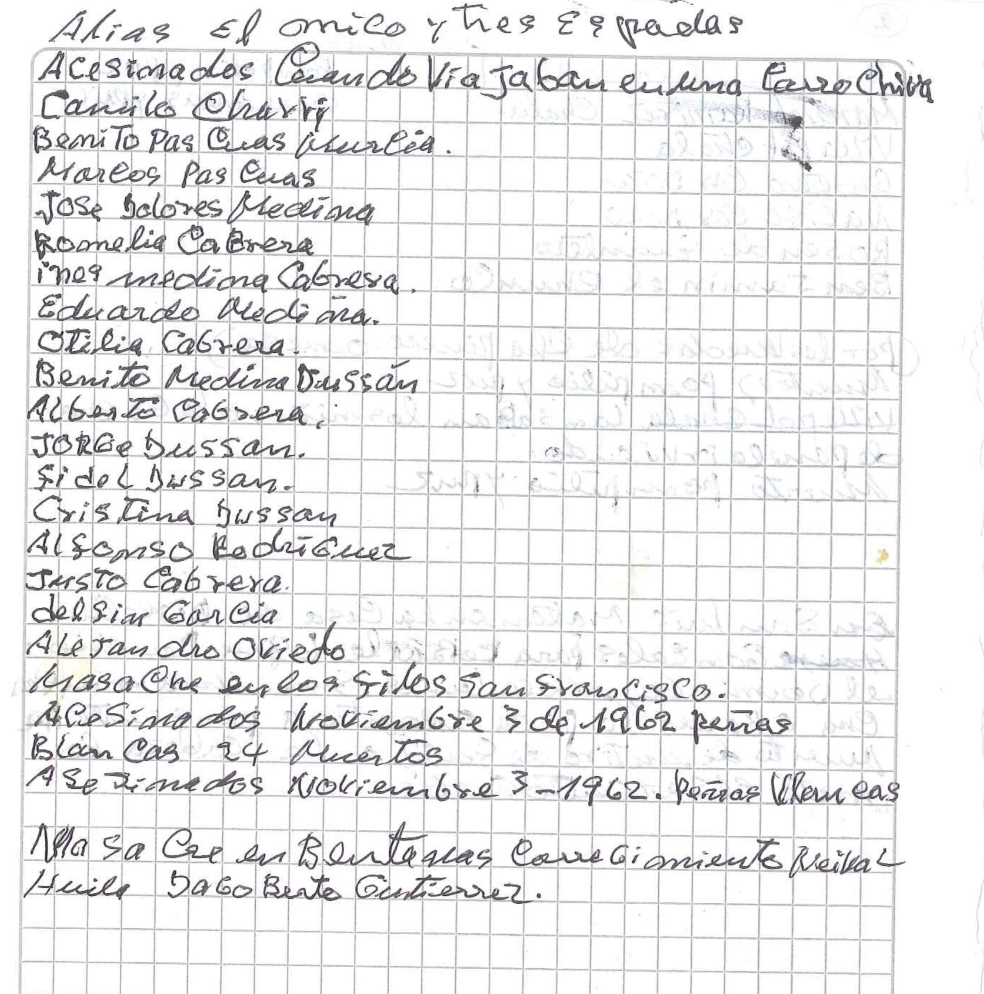 Alias El mico y tres Espadas
Acesinados Cuando Viajaban en una Carro Chiva
Camilo Charri
Benito Pas Cuas Murcia.
Marcos Pas Cuas
Jose Dolores Medina
Romelia Cabrera
ines medina Cabrera.
Eduardo Medina.
Otilia Cabrera.
Benito Medina Dussán
Alberto Cabrera.
JORGe Dussan.
fidel Dussan.
Cristina Dussan
Alfonso Rodriguez
Justo Cabrera.
delfin Garcia
Alejandro Oviedo
Masacre en los filos San Francisco.
ACeSinados Noviembre 3 de 1962 peñas
Blan Cas 24 Muertos
Asecinados Noviembre 3-1962. Peñas Blancas
Masa Cre en Corregimiento Neiva
Huila Dagoberto Gutierrez.